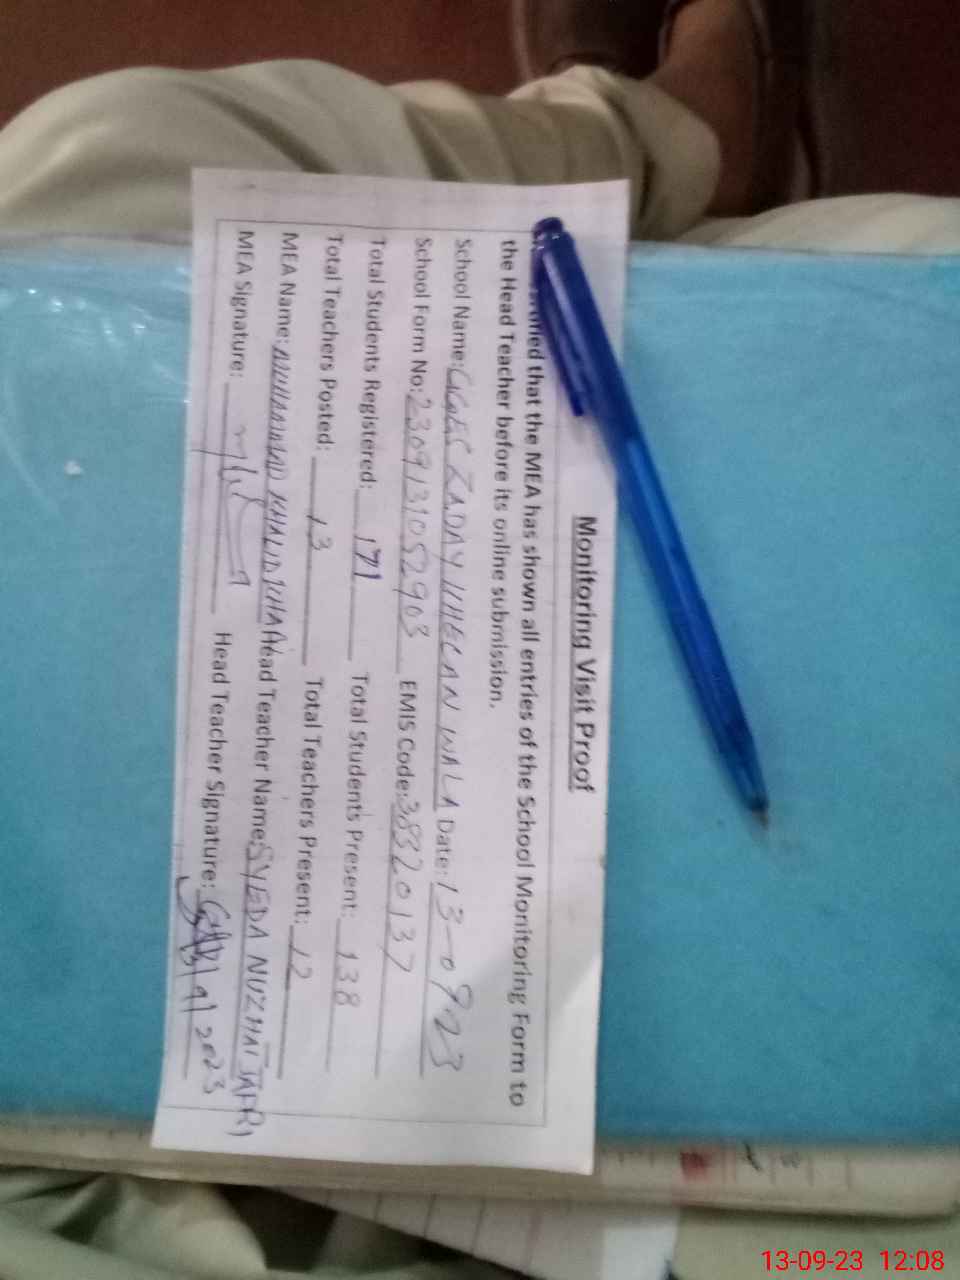 Monitoring Visit Proof
that the MEA has shown all entries of the School Monitoring Form to
the Head Teacher before its online submission.
School Name: ZADAY KHELAN WALA Date: 13-0923
School Form No: 2309131052903 EMIS Code: 38320137
Total Students Registered: 171 Total Students Present: 138
Total Teachers Posted: 13 Total Teachers Present: 12
MEA Name: MUHAMMAD KHALID KHAN Head Teacher Name: SYEDA NUZHAT JAFRI
MEA Signature: Head Teacher Signature: 13/9/2023
13-09-23 12:08